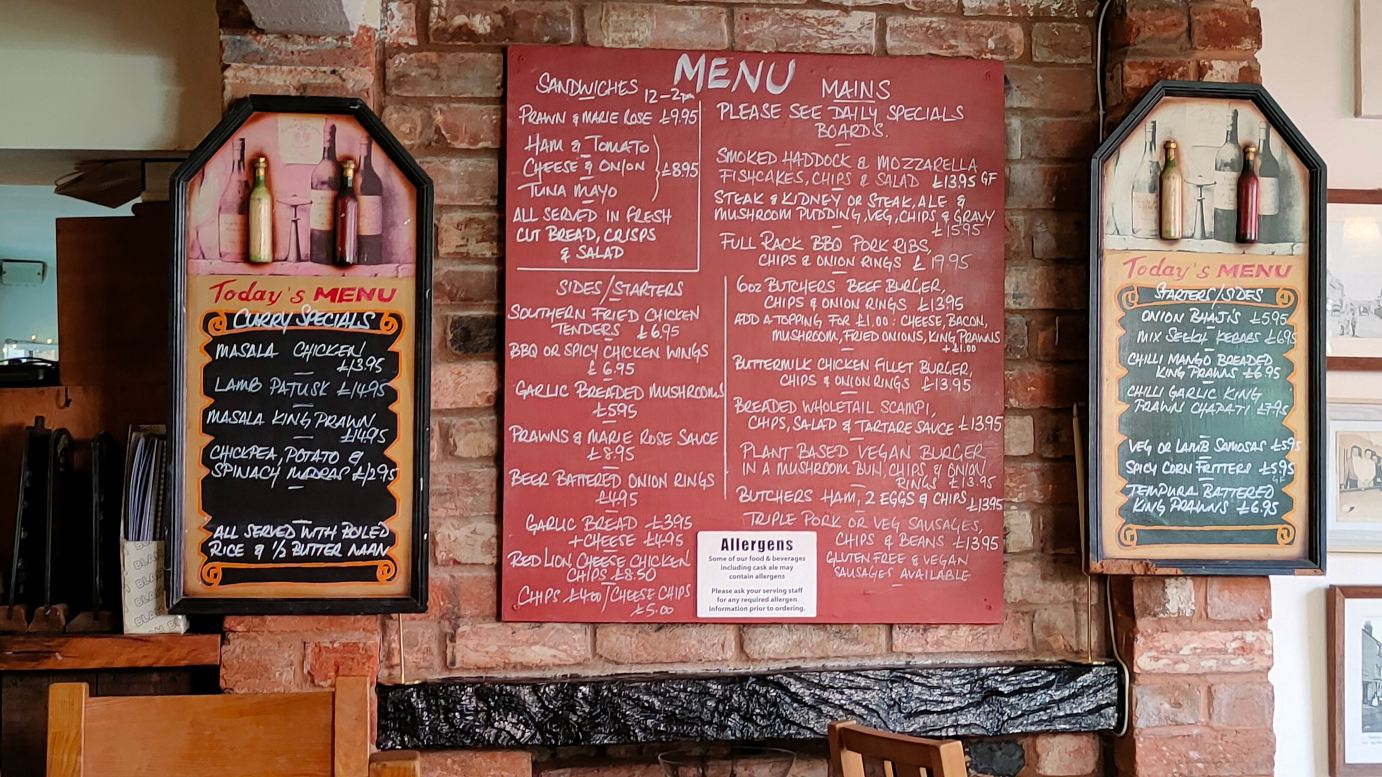 Today's MENU
CURRY SPECIALS
MASALA CHICKEN
£13.95
LAMB PATUSK £14.95
MASALA KING PRAWN
£14.95
CHICKPEA, POTATO &
SPINACH MADRAS £12.95
ALL SERVED WITH BOILED
RICE & ½ BUTTER NAAN
BLAH BLAH
MENU
SANDWICHES 12-2pm
PRAWN & MARIE ROSE £9.95
HAM & TOMATO
CHEESE & ONION £8.95
TUNA MAYO
ALL SERVED IN FRESH
CUT BREAD, CRISPS
& SALAD
SIDES/STARTERS
SOUTHERN FRIED CHICKEN
TENDERS £6.95
BBQ OR SPICY CHICKEN WINGS
£6.95
GARLIC BREADED MUSHROOMS
£5.95
PRAWNS & MARIE ROSE SAUCE
£8.95
BEER BATTERED ONION RINGS
£4.95
GARLIC BREAD £3.95
+CHEESE £4.95
RED LION CHEESE CHICKEN
CHIPS £8.50
CHIPS £4.00/CHEESE CHIPS
£5.00
MAINS
PLEASE SEE DAILY SPECIALS
BOARDS.
SMOKED HADDOCK & MOZZARELLA
FISHCAKES, CHIPS & SALAD £13.95 GF
STEAK & KIDNEY OR STEAK, ALE &
MUSHROOM PUDDING, VEG, CHIPS & GRAVY
£15.95
FULL RACK BBQ PORK RIBS,
CHIPS & ONION RINGS £19.95
6oz BUTCHERS BEEF BURGER,
CHIPS & ONION RINGS £13.95
ADD A TOPPING FOR £1.00: CHEESE, BACON,
MUSHROOM, FRIED ONIONS, KING PRAWNS
+£1.00
BUTTERMILK CHICKEN FILLET BURGER,
CHIPS & ONION RINGS £13.95
BREADED WHOLETAIL SCAMPI,
CHIPS, SALAD & TARTARE SAUCE £13.95
PLANT BASED VEGAN BURGER
IN A MUSHROOM BUN, CHIPS, & ONION
RINGS £13.95
BUTCHERS HAM, 2 EGGS & CHIPS £13.95
TRIPLE PORK OR VEG SAUSAGES,
CHIPS & BEANS £13.95
GLUTEN FREE & VEGAN
SAUSAGES AVAILABLE
Allergens
Some of our food & beverages
including cask ale may
contain allergens
Please ask your serving staff
for any required allergen
information prior to ordering.
Today's MENU
STARTERS/SIDES
ONION BHAJI'S £5.95
MIX SEEKH KEBABS £6.95
CHILLI MANGO BREADED
KING PRAWNS £6.95
CHILLI GARLIC KING
PRAWN CHAPATI £7.95
VEG OR LAMB SAMOSAS £5.95
SPICY CORN FRITTERS £5.95
GF
TEMPURA BATTERED
KING PRAWNS £6.95